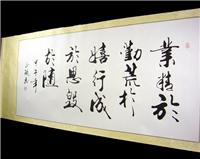 業精於
勤荒於
嬉行成
於思毀
於隨
甲午年